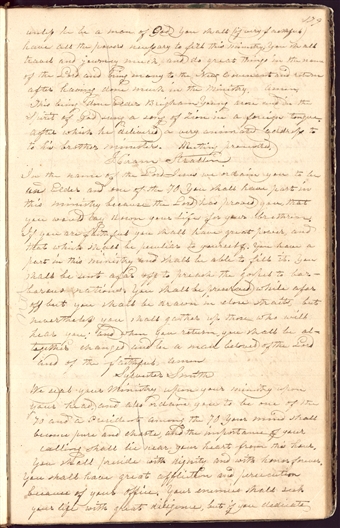 179
until he be a man of God. You shall if very faithful
have all the powers necessary to fill this ministry, You shall
travel and journey much, and do great things in the name
of the Lord and bring many to the New Covenant and return
after having done much in the ministry, Amen
This being done Elder Brigham Young arose and in the
Spirit of God sung a song of Zion in a foreign tongue,
after which he delivered a very animated address to
to his brother ministers. Meeting
Hiram Stratton
In the name of the Lord Jesus we ordain you to be
an Elder and one of the 70. You shall have part in
this ministry because the Lord has proved you that
you would lay down your life for your brethren.
If you are faithful you shall have great power, and
that which shall be peculiar to yourself. You have a
part in this ministry and shall be able to fill it. You
shall be sent afar off to preach the gospel to bar-
barous nations. You shall be preserved while afar
off but you shall be drawn in close straits, but
nevertheless you shall gather up those who will
hear you; and when you return, you shall be al-
together changed and be a man beloved of the Lord
and of the faithful, Amen
Sylvester Smith
We seal your Ministry upon your
your head, and also ordain you to be one of the
70 and a President among the 70. Your mind shall
become pure and chaste, and the importance of your
calling shall lie near your heart from this hour,
You shall preside with dignity and with honor forever,
You shall have great affliction and persecution
because of your office, your enemies shall seek
your life with great diligence, but if you dedicate